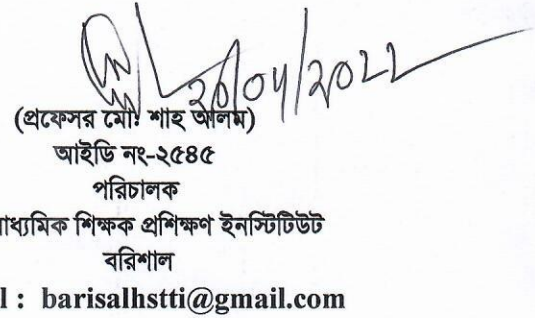 ২০/০৭/২০২২
(প্রফেসর মোঃ শাহ আলম)
আইডি নং-২৫৪৫
পরিচালক
াধ্যমিক শিক্ষক প্রশিক্ষণ ইনস্টিটিউট
বরিশাল
l : barisalhstti@gmail.com